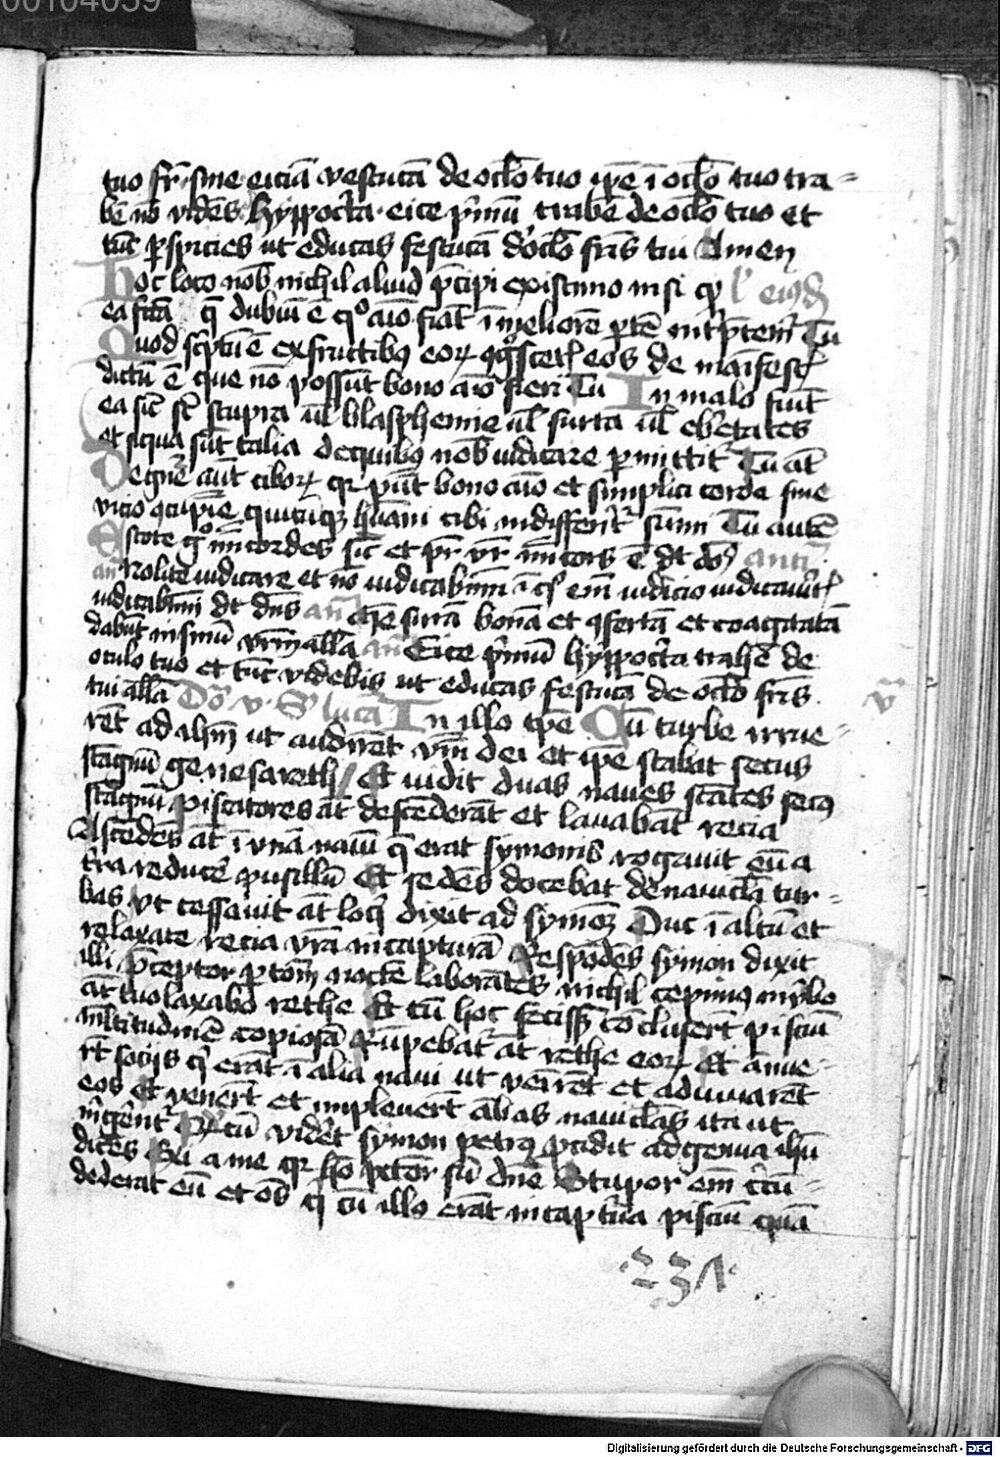 00104059
tuo fr̄ sine eiciā vestucā de oclō tuo ip̄e ī oclō tuo tra-
bē nō vidēs hyppocͬta eice pͥmū trabē de oclō tuo et
tūc ꝑspicies ut educas festucā d' oclō frīs tui Amen
Hoc loco nob̄ nichil aliud p̄cipi existimo nisi qꝫ l' eiꝰdē
ea fc̄ā q̄ dubiū ē qͦ aīo fiāt ī meliorē ꝑtē int͛p̄tem͛ Tu
Quod scͥptū ē ex fructibꝰ eoꝝ ꝯgͦscetꝭ eos de manifestꝭ
dictū ē que nō possūt bono aīo fieri Tu In malo fiūt
ea sic̄ st̄ stupra ul̄ blasphemie ul̄ furta ul̄ ebͥetates
et siqua sūt talia de quibꝰ nob̄ iudicare ꝑmittit͛ Tu āt
De gn̄e aūt ciboꝝ qꝛ pn̄t bono aīo et simplici corde sine
vicio ꝯcupīe quicūqꝫ hūani cibi indifferēt͛ sumi Tu autē
Estote gͦ mīcordes sic̄ et pr̄ vr̄ mīcors ē dt dn̄s anti
an̄ Nolite iudicare et nō iudicabimī ī qͦ em̄ iudicio iudicavͥtꝭ
iudicabimī dt dn̄s an̄ mēsurā bonā et ꝯfertā et coagitatā
dabūt in sinū vrm̄ all̄a an̄ Eice pͥmū hyppocͬta trabē de
oculo tuo et tūc videbis ut educas festucā de oclō frīs
tui all̄a Dō v. S' lucā In illo tp̄e Cū turbe irrue- v
rēt ad ihm̄ ut audirēt v̄m dei et ip̄e stabat secus
stagnū genesareth / Et vidit duas naues stātes secꝰ
stagnū piscatores āt descēderāt et lauabāt recia
Ascēdēs āt ī vnā nauī q̄ erat symonis rogauit eū a
t͛ra reducͤe pusillū Et sedēs docebat de nauicl̄a tur-
bas Vt cessauit āt loqͥ dixit ad symoē Duc ī altū et
relaxate recia vr̄a in capturā Respōdēs symon dixit
illi p̄ceptor ꝑ totā noctē laborātes nichil cepimꝰ in v̄bo
āt tuo laxabo rethe Et cū hoc fecissēt cōcluserūt pisciū
mltitudinē copiosā Rūpebat͛ āt rethe eoꝝ Et ānue-
rt̄ socijs qͥ erāt ī alia naui ut venirēt et adiuuarēt
eos Et venerūt et impleuerūt ābas nauiclas ita ut
m͛gerēnt͛ Qd' cū vidēt symon petrꝰ ꝓcidit ad genua ihū
dicēs Exi a me qꝛ hō pctōr sū dn̄e Stupor em̄ circū-
dederat eū et oēs qͥ cū illo erāt in captura pisciū quā
·231·
Digitalisierung gefördert durch die Deutsche Forschungsgemeinschaft - DFG